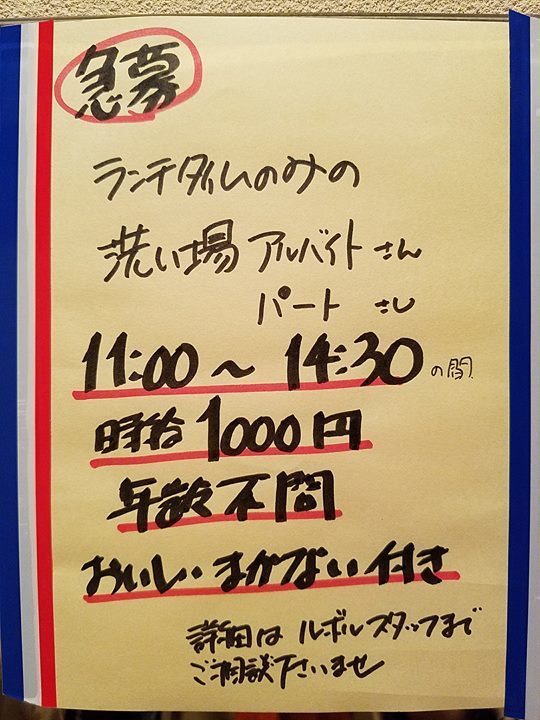 急募
ランチタイムのみの
洗い場アルバイトさん
パートさん
11:00〜14:30の間
時給1000円
年齢不問
おいしいまかない付き
詳細はルボルスタッフまで
ご相談下さいませ